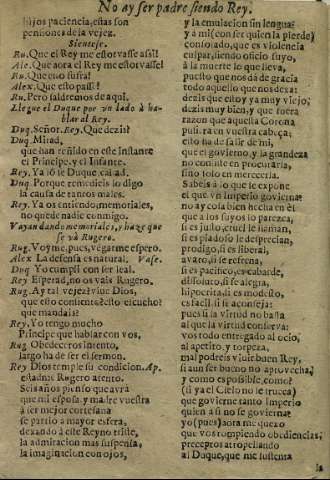 No ay ser padre siendo Rey.
hijos paciencia, estas son
pensiones de la vejez.
Sientese.
Ru. Que el Rey me estorvasse assi!
Ale. Que aora el Rey me estorvasse!
Ru. Que esto sufra!
Alex. Que esto passe!
Ru. Pero saldremos de aqui.
Llegue el Duque por vn lado à ha-
blar al Rey.
Duq. Señor. Rey. Que dezis?
Duq. Mirad,
que han reñido en este instante
el Principe, y el Infante.
Rey. Ya lo sè Duque, callad.
Duq. Porque remedieis lo digo
la causa de tantos males.
Rey. Ya os entiendo, memoriales,
no quede nadie conmigo.
Vayan dando memoriales, y haze que
se và Rugero.
Rug. Voyme pues, vegarme espero.
Alex La defensa es natural. Vase.
Duq Yo cumpli con ser leal.
Rey Esperad, no os vais Rugero.
Rug. Ay tal vejez! viue Dios,
que esto consiente! esto escucho!
que mandais?
Rey, Yo tengo mucho
Principe que hablar con vos,
Rug Obedecer os intento,
largo ha de ser el sermon.
Rey Dios temple su condicion. Ap.
estadme Rugero atento.
Seis años pienso que avrà
que mi esposa, y madre vuestra
à ser mejor cortesana
se partiò a mayor esfera,
dexando à este Reyno triste,
la admiracion mas suspensa,
la imaginacion con ojos,
y la emulacion sin lengua:
y a mi (con ser quien la pierde)
consolado, que es violencia
culpar, siendo oficio suyo,
à la muerte lo que lleva,
puesto que nos dà de gracia
todo aquello que nos dexa:
dezis que estoy ya muy viejo;
dezis muy bien, y que fuera
razon que aquella Corona
pusiera en vuestra cabeça;
esto ha de salir de mi,
que el govierno, y la grandeza
no consiste en procurarla,
sino solo en merecerla.
Sabeis à lo que se expone
el que vn Imperio govierna?
no ay cosa bien hecha en èl
que a los suyos lo parezca,
si es justo, cruel le llaman,
si es piadoso le desprecian,
prodigo, si es liberal,
avaro, si se refrena,
si es pacifico, es cobarde,
dissoluto, si se alegra,
hipocrita, si es modesto,
es facil, si se aconseja:
pues si la virtud no basta
al que la virtud conserva:
vos todo entregado al ocio,
al apetito, y torpeza,
mal podreis viuir buen Rey,
si aun ser bueno no aprovecha,
y como es possible, como?
(si ya el Cielo no le trueca)
que govierne tanto Imperio
quien a si no se govierna?
yo (pues) aora me quexo
que vos rompiendo obediencias,
preceptos atropellando
al Duque, que me sustenta
la